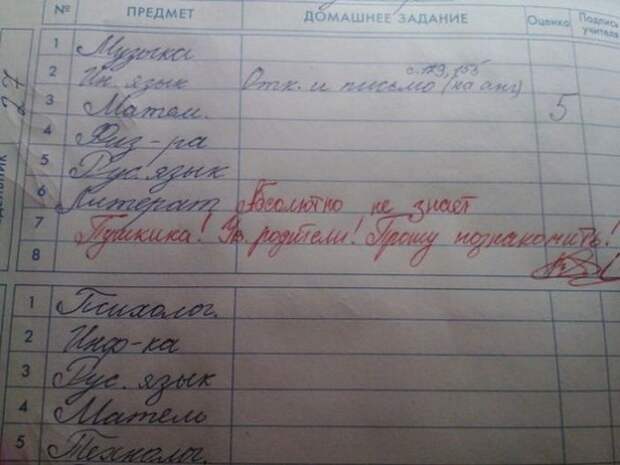 № ПРЕДМЕТ ДОМАШНЕЕ ЗАДАНИЕ Оценка Подпись учителя
27
1 Музыка
с.129, 155
2 Ин. язык Отк. и письмо (на анг)
3 Матем. 5
4 Физ-ра
5 Рус. язык
6 Литерат. Абсолютно не знает
7 Пушкина! Ув. родители! Прошу познакомить!
8
1 Психолог.
2 Инф-ка
3 Рус. язык
4 Матем
5 Технолог.